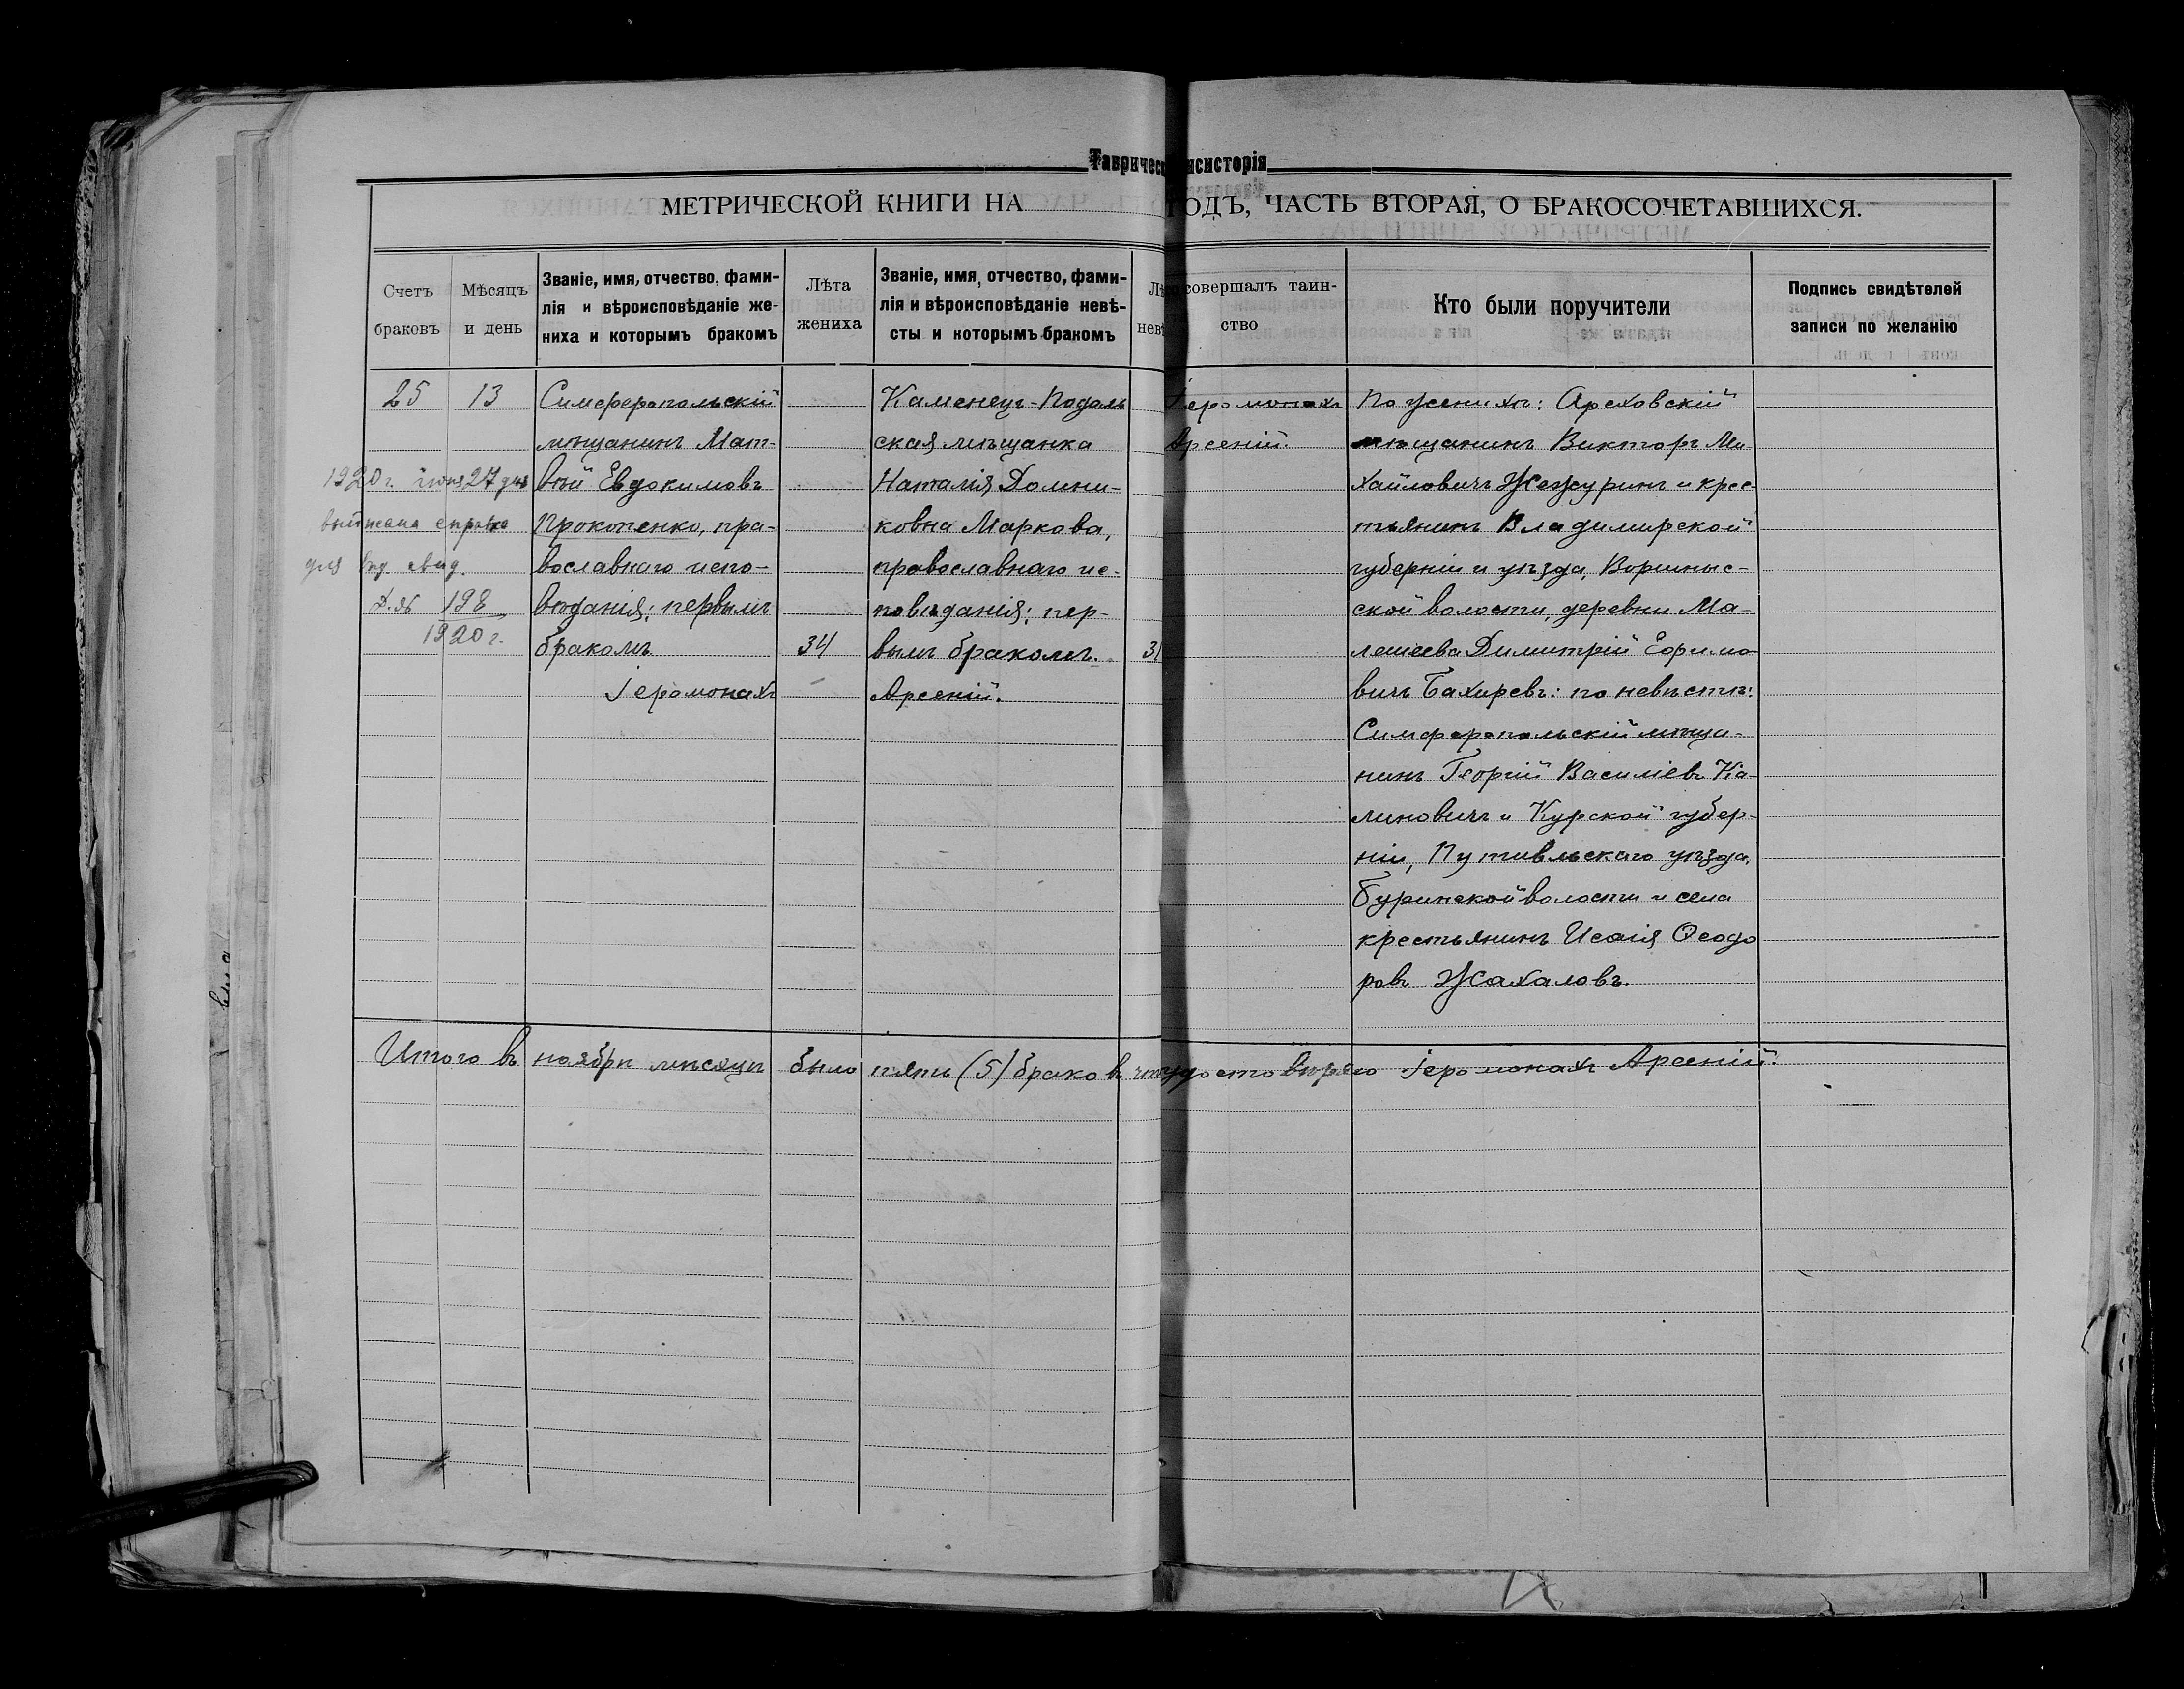 Таврическ нсисторія
МЕТРИЧЕСКОЙ КНИГИ НА ГОДЪ, ЧАСТЬ ВТОРАЯ, О БРАКОСОЧЕТАВШИХСЯ.
Счетъ
браковъ
Мѣсяцъ
и день
Званіе, имя, отчество, фами-
лія и вѣроисповѣданіе же-
ниха и которымъ бракомъ
Лѣта
жениха
Званіе, имя, отчество, фами-
лія и вѣроисповѣданіе невѣ-
сты и которымъ бракомъ
Лѣ
невѣ
совершалъ таин-
ство
Кто были поручители
Подпись свидѣтелей
записи по желанію
25
13
Симферопольскій
мѣщанинъ Мат-
вѣй Евдокимовъ
Прокопенко, пра-
вославнаго испо-
вѣданія; первымъ
бракомъ
34
Каменецъ-Подоль
ская мѣщанка
Наталія Домни-
ковна Маркова,
православнаго ис-
повѣданія; пер-
вымъ бракомъ.
31
Іеромонахъ Арсеній.
Іеромонахъ
Арсеній.
По женихѣ: Ореховскій
мѣщанинъ Викторъ Ми
хайловичъ Жежуринъ и крес
тьянинъ Владимирской
губерніи и уѣзда, Ворши
ской волости, деревни Ма-
леева Димитрій Ефимо
вичъ Бахиревъ: по невѣстѣ:
Симферопольскій мѣща-
нинъ Георгій Василіевъ Ка-
линовичъ и Курской губер-
ніи, Путивльскаго уѣзда,
Буринской волости и села
крестьянинъ Исаія Ѳеодо
ровъ Жахаловъ.
1920 г. іюня 27 дня
выписана справка
для свид.
Д. № 198
1920 г.
Итого въ ноябрѣ мѣсяцѣ было пять (5) браковъ что удостовѣряю Іеромонахъ Арсеній.